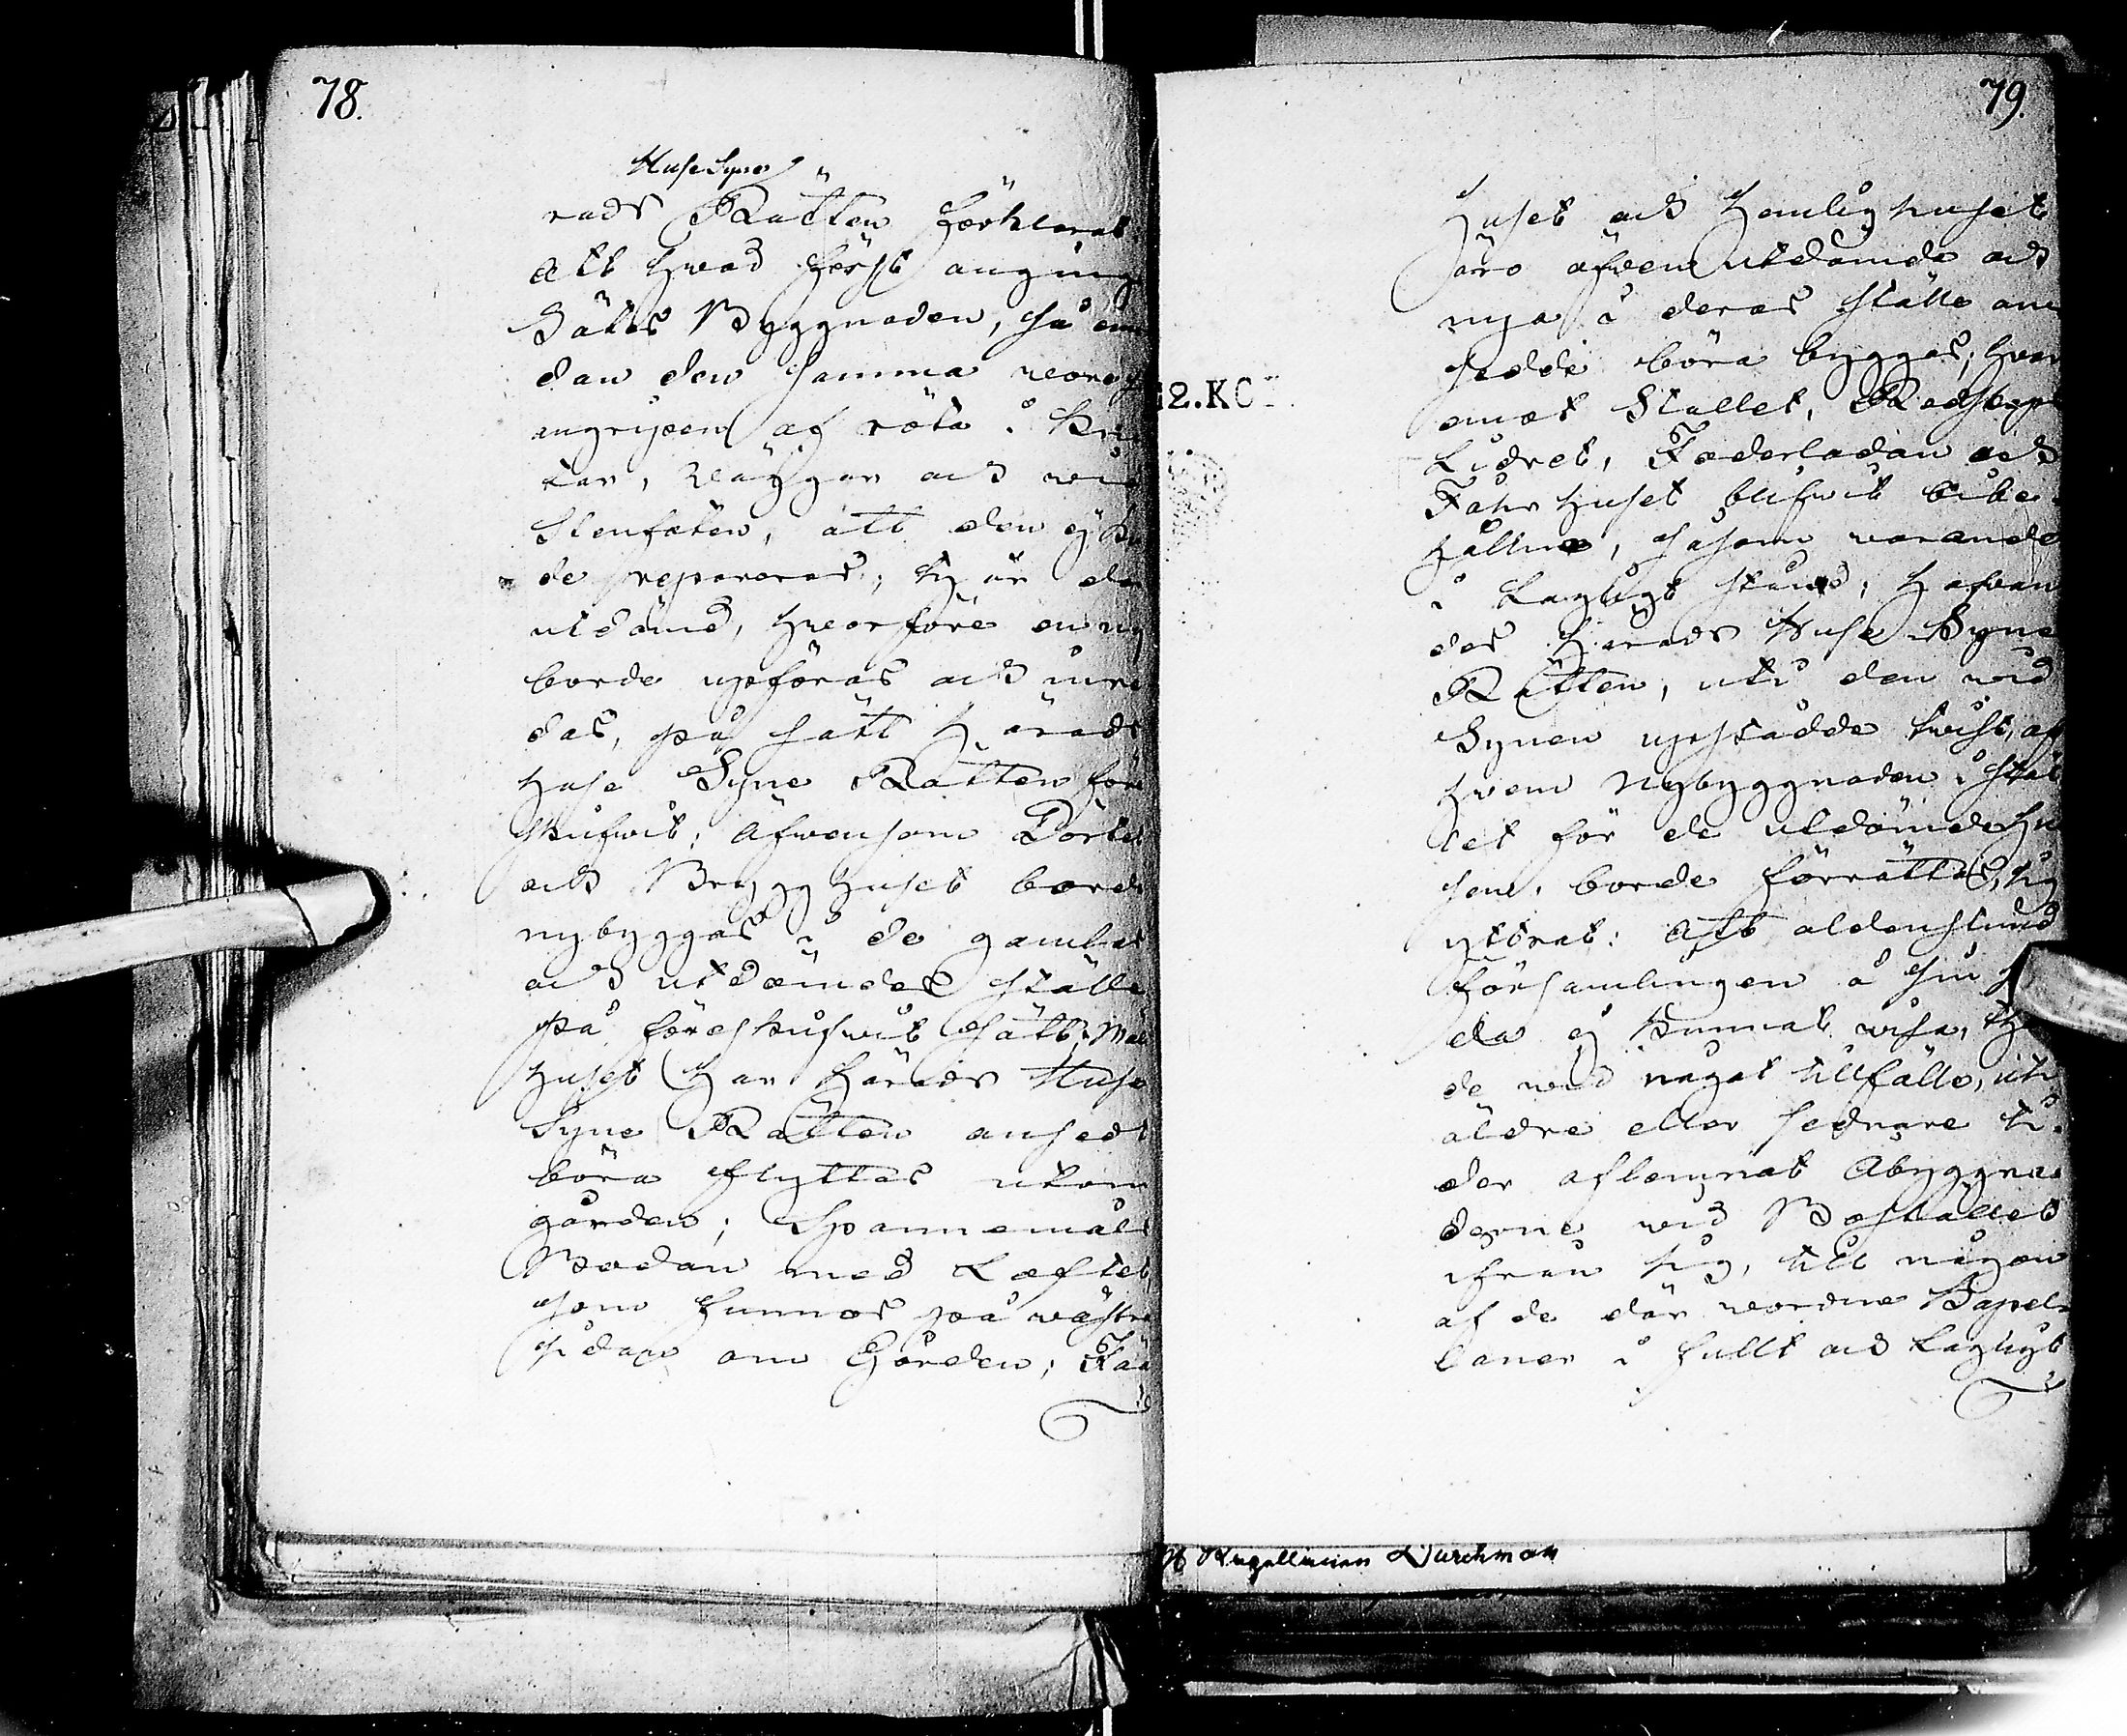 78.
Huse Syne
rads Rätten förklarat
Att hwad först anging
Sätes Byggnaden, så eme
dan den samma wore
angripen af röta i Knu
tar, wäggar och wid
Stenfoten, att den ej kun
de repareras; ty är den
utdömd, hwarföre en ny
borde upföras och inre
das, på sätt Härads
Huse Syne Rätten före
skrifwit; Äfwensom Porten
och Brygghuset borde
nybyggas i de gamlas
och utdömdes ställe
på föreskrifwit sätt;
huset har Härads Huse
Syne Rätten ansedt
böra flyttas utom
gården; Spannemåls
Bodan med Loftet,
som funnos på wästra
sidan om Gården; Fää
79.
huset och Hemlighuset
äro äfwen utdömde och
nya i deras ställe an
sedde böra byggas; hwar
emot Stallet, Redskaps
Lidret, Foderladan och
Fåhrhuset blifwit bibe-
hållne, såsom warande
i Lagligt stånd; hafwan
des Härads Huse Syne
Rätten, uti den wid
Synen upstådde twist, af
hwem Nybyggnaden i stäl
let för de utdömde hu
sen, borde förrättas, sig
yttrat: Att aldenstund
församlingen å sin
da ej kunnat wisa,
de wid något tillfälle, uti
äldre eller sednare ti-
der aflemnat Åbyggna
derne wid Bostället
ifrån sig, till någon
af de där wordne Capel-
laner i fullt och Lagligt
12.KO
Kapellanen Durchman